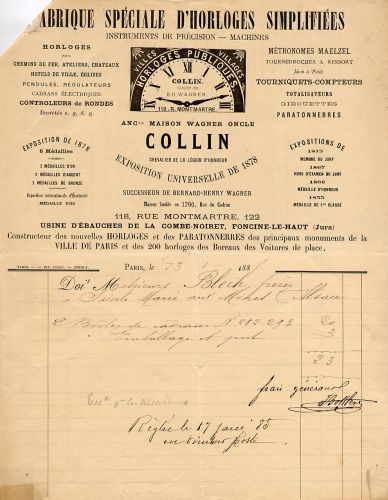 FABRIQUE SPÉCIALE D'HORLOGES SIMPLIFIÉES
INSTRUMENTS DE PRÉCISION — MACHINES
HORLOGES
POUR
CHEMINS DE FER, ATELIERS, CHATEAUX
HOTELS DE VILLE, ÉGLISES
PENDULES, RÉGULATEURS
CADRANS ÉLECTRIQUES
CONTROLEURS de RONDES
Brevetés s. g. d. g.
VILLES VILLAGES
HORLOGES PUBLIQUES
COLLIN
SUCCR DE
B.H. WAGNER
118, R. MONTMARTRE
MÉTRONOMES MAELZEL
TOURNEBROCHES A RESSORT
Idem à Poids
TOURNIQUETS-COMPTEURS
TOTALISATEURS
GIROUETTES
PARATONNERRES
ANCNE MAISON WAGNER ONCLE
COLLIN
CHEVALIER DE LA LÉGION D'HONNEUR
EXPOSITION UNIVERSELLE DE 1878
SUCCESSEUR DE BERNARD-HENRY WAGNER
Maison fondée en 1790, Rue du Cadran
EXPOSITION DE 1878
6 Médailles
2 MÉDAILLES D'OR
2 MÉDAILLES D'ARGENT
2 MÉDAILLES DE BRONZE
Exposition internationale d'Électricité
MÉDAILLE D'OR
EXPOSITIONS DE
1875
MEMBRE DU JURY
1867
HORS CONCOURS
1860
MÉDAILLE D'HONNEUR
1855
MÉDAILLE DE 1re CLASSE
118, RUE MONTMARTRE, 122
USINE D'ÉBAUCHES DE LA COMBE-NOIRET, FONCINE-LE-HAUT (Jura)
Constructeur des nouvelles HORLOGES et des PARATONNERRES des principaux monuments de la
VILLE DE PARIS et des 200 horloges des Bureaux des Voitures de place.
PARIS, le 13 188
Doit Messieurs Bloch frères
à Sainte Marie aux Mines Alsace
2 de cadrans No 282.293 20
Emballage & port 3
23
frais généraux
Réglée le 17 1885
poste